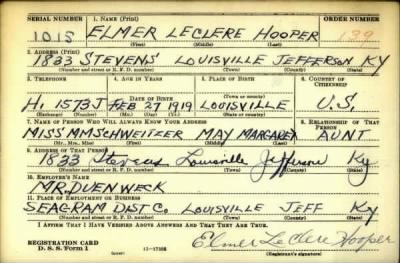 SERIAL NUMBER 1. NAME (Print) ORDER NUMBER
1015 ELMER LECLERE HOOPER 139
(First) (Middle) (Last)
2. ADDRESS (Print)
1833 STEVENS LOUISVILLE JEFFERSON KY
(Number and street or R. F. D. number) (Town) (County) (State)
3. TELEPHONE 4. AGE IN YEARS 5. PLACE OF BIRTH 6. COUNTRY OF CITIZENSHIP
H. 1573J FEB 27 1919 LOUISVILLE U.S.
(Exchange) (Number) (Month) (Day) (Yr.) (State or country)
7. NAME OF PERSON WHO WILL ALWAYS KNOW YOUR ADDRESS 8. RELATIONSHIP OF THAT PERSON
MISS M M SCHWEITZER MAY MARGARET AUNT
(Mr., Mrs., Miss) (First) (Middle) (Last)
9. ADDRESS OF THAT PERSON
1833 Stevens Louisville Jefferson Ky
(Number and street or R. F. D. number) (Town) (County) (State)
10. EMPLOYER'S NAME
MR. DUENWECK
11. PLACE OF EMPLOYMENT OR BUSINESS
SEAGRAM DIST CO. LOUISVILLE JEFF KY
(Number and street or R. F. D. number) (Town) (County) (State)
I AFFIRM THAT I HAVE VERIFIED ABOVE ANSWERS AND THAT THEY ARE TRUE.
REGISTRATION CARD
D. S. S. Form 1 Elmer LeClere Hooper
(Registrant's signature)